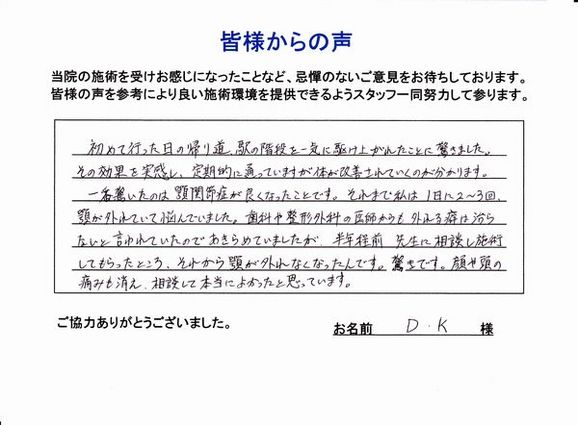 皆様からの声
当院の施術を受けお感じになったことなど、忌憚のないご意見をお待ちしております。
皆様の声を参考により良い施術環境を提供できるようスタッフ一同努力して参ります。
初めて行った日の帰り道、駅の階段を一気に駆け上がれたことに驚きました。
その効果を実感し、定期的に通っていますが体が改善されていくのが分かります。
一番驚いたのは顎関節症が良くなったことです。それまで私は1日に2〜3回、
顎が外れていて悩んでいました。歯科や整形外科の医師からも外れる癖は治ら
ないと言われていたのであきらめていましたが、半年程前 先生に相談し施術
してもらったところ、それから顎が外れなくなったんです。驚きです。顔や頭の
痛みも消え、相談して本当によかったと思っています。
ご協力ありがとうございました。
お名前 D・K 様